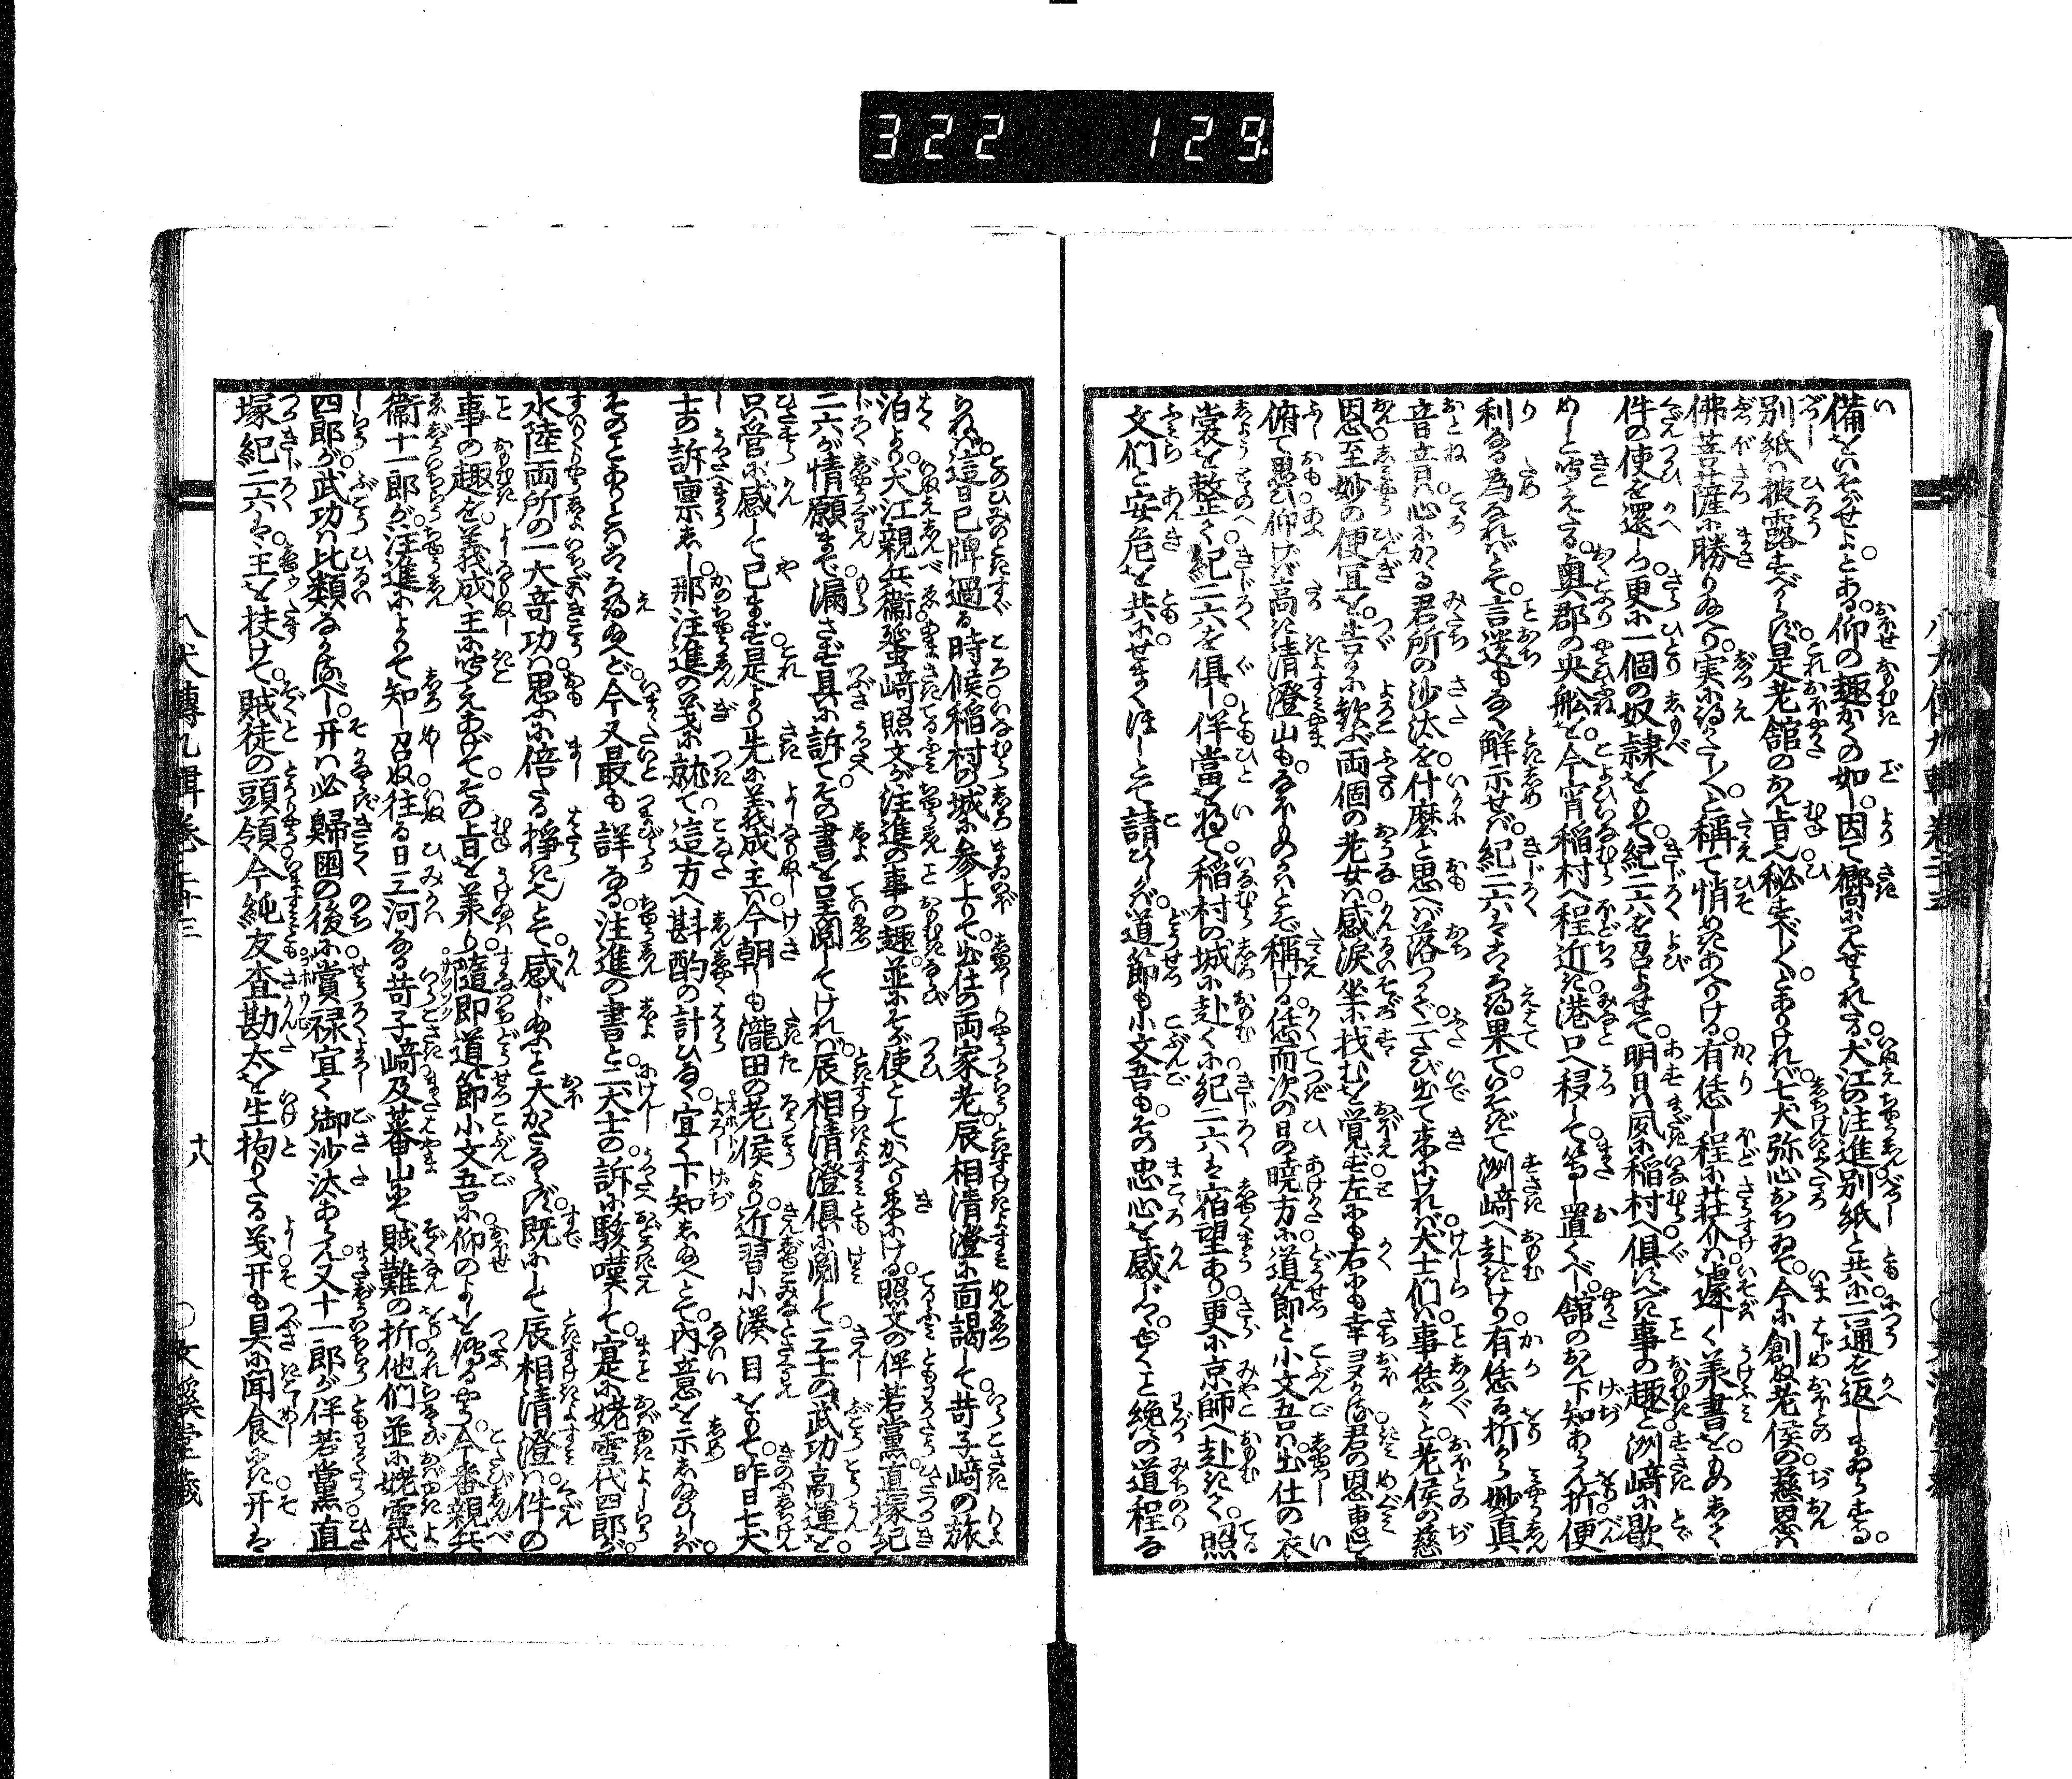 322 129
備をいそがせよ。とある。仰の趣かくの如し。因て郷に見せられたる。犬江の注進別紙と共に。二通を返しまゐらする。
別紙は披露すべからず。是老舘のおん旨也。秘すべし〱。とありければ。七犬弥心おちゐて。今に創ぬ老侯の。慈恩は
佛菩薩に勝り給へり。実に得がたし〱と稱て悄めきあへりける。有恁し程に荘介は。遽しく美書をものしきて
件の使を還しつ。更に一個の奴隷をもて。紀二六を召よせて。明日は夙に稲村へ倶すべき事の趣と。洲﨑に歇
めしと聞えたる。奥郡の央舩を。今宵稲村へ程近き。港口へ移して等し置くべし。舘のおん下知あらん折便
利なる為なればとて。言遺もなく解示せば。紀二六はこゝろ得果て。いそぎて洲﨑へ赴きけり。有恁る折から妙真
音音は。心にかゝる君所の沙汰を。什麼と思へば落つかず。二たび出て来にければ。犬士們は。事恁々と老侯の慈
恩至妙の便宜を。告るに歓ぶ両個の老女は。感涙坐に找むを覚ず。左にも右にも幸ヨヌかる。君の恩恵を
俯て思ひ仰げば高き清澄山も。なほものかはとぞ稱ける。恁而次の日の暁方に。道節と小文吾は。出仕の衣
裳を整へ。紀二六を倶し。伴當を将て。稲村の城に赴くに。紀二六は宿望あり。更に京師へ赴きて。照
文們と安危を共にせまくほしとて請ひしかば。道節も小文吾も。その忠心を感じつゝ。巳に纔の道程な
れば。這日巳牌過る時候。稲村の城に参上りて。出仕の両家老。辰相清澄に面謁して。苛子﨑の旅
泊より。犬江親兵衞蜑﨑照文が。注進の事の趣。並にそが使としてかへり来にける。照文の伴若黨。直塚紀
二六が情願まで。漏さず具に訴て。その書を呈閲してければ。辰相清澄倶に閲して。二士の武功高運を。
只管に感して已まず。是より先に義成主は。今朝しも瀧田の老侯より。近習小湊目をもて。昨日七犬
士の訴稟しし。那注進の義に就て。這方へ斟酌の計ひなく。宜く下知し給へとて。内意を示し給ひしかば。
そのことありとはこゝろ得給へど。今又最も詳なる。注進の書と二犬士の。訴に駭嘆して。寔に姥雪代四郎が。
水陸両所の一大奇功は。思ふに倍たる挊きとて。感じ給ふこと大かたならず。既にして辰相清澄は。件の
事の趣を。義成主に聞えあげて。その旨を美り。隨即道節小文吾に。仰のよしを傳るやう。今番親兵
衞十一郎が。注進によりて知し召ぬ。往る日三河なる苛子﨑及蕃山にて。賊難の折。他們並に姥雪代
四郎が。武功は比類なかるべし。开は必歸國の後に。賞禄宜く御沙汰あらん。又十一郎が伴若黨。直
塚紀二六は。主を扶けて。賊徒の頭領。今純友査勘太を生拘りたる。義开も具に聞食にき。开は
八犬傳九輯巻二十三
十八
○文溪堂藏